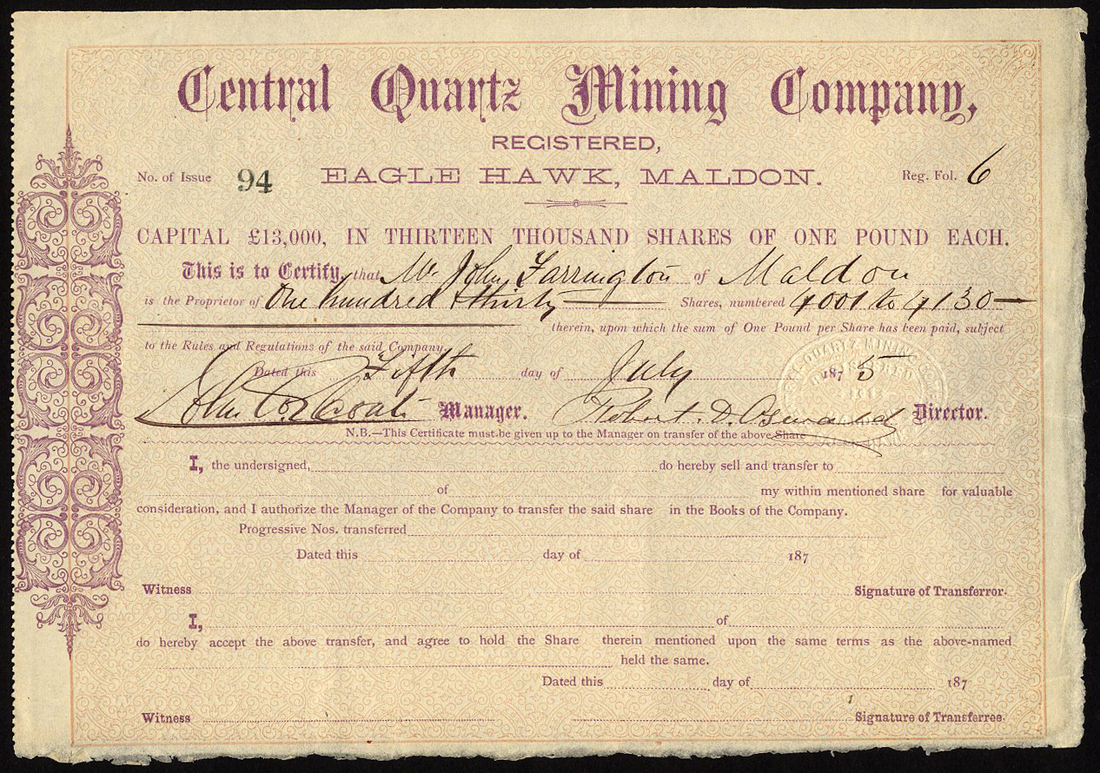 Central Quartz Mining Company,
REGISTERED,
No. of Issue 94 EAGLE HAWK, MALDON. Reg. Fol. 6
CAPITAL £13,000, IN THIRTEEN THOUSAND SHARES OF ONE POUND EACH.
This is to Certify, that Mr John Farrington of Maldon
is the Proprietor of One hundred & thirty Shares, numbered 9001 to 9130
therein, upon which the sum of One Pound per Share has been paid, subject
to the Rules and Regulations of the said Company.
Dated this Fifth day of July 1875
John Manager. Robert. D. Oswald Director.
N.B.—This Certificate must be given up to the Manager on transfer of the above Share
I, the undersigned, do hereby sell and transfer to
of my within mentioned share for valuable
consideration, and I authorize the Manager of the Company to transfer the said share in the Books of the Company.
Progressive Nos. transferred
Dated this day of 187
Witness Signature of Transferror.
I, of
do hereby accept the above transfer, and agree to hold the Share therein mentioned upon the same terms as the above-named
held the same.
Dated this day of 187
Witness Signature of Transferree.